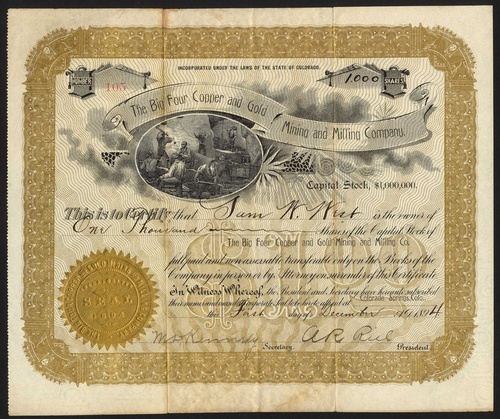 INCORPORATED UNDER THE LAWS OF THE STATE OF COLORADO.
NUMBER
105
1000
SHARES
The Big Four Copper and Gold
Mining and Milling Company.
Capital Stock, $1,000,000.
This is to Certify that Sam W. West is the owner of
One Thousand Shares of the Capital Stock of
The Big Four Copper and Gold Mining and Milling Co.
full paid and non-assessable transferable only on the Books of the
Company in person or by Attorney on surrender of this Certificate
In Witness Whereof, the President and Secretary have hereunto subscribed
their names and caused the corporate Seal to be hereto affixed at Colorado Springs, Colo.
this First day of December
Secretary.
President.